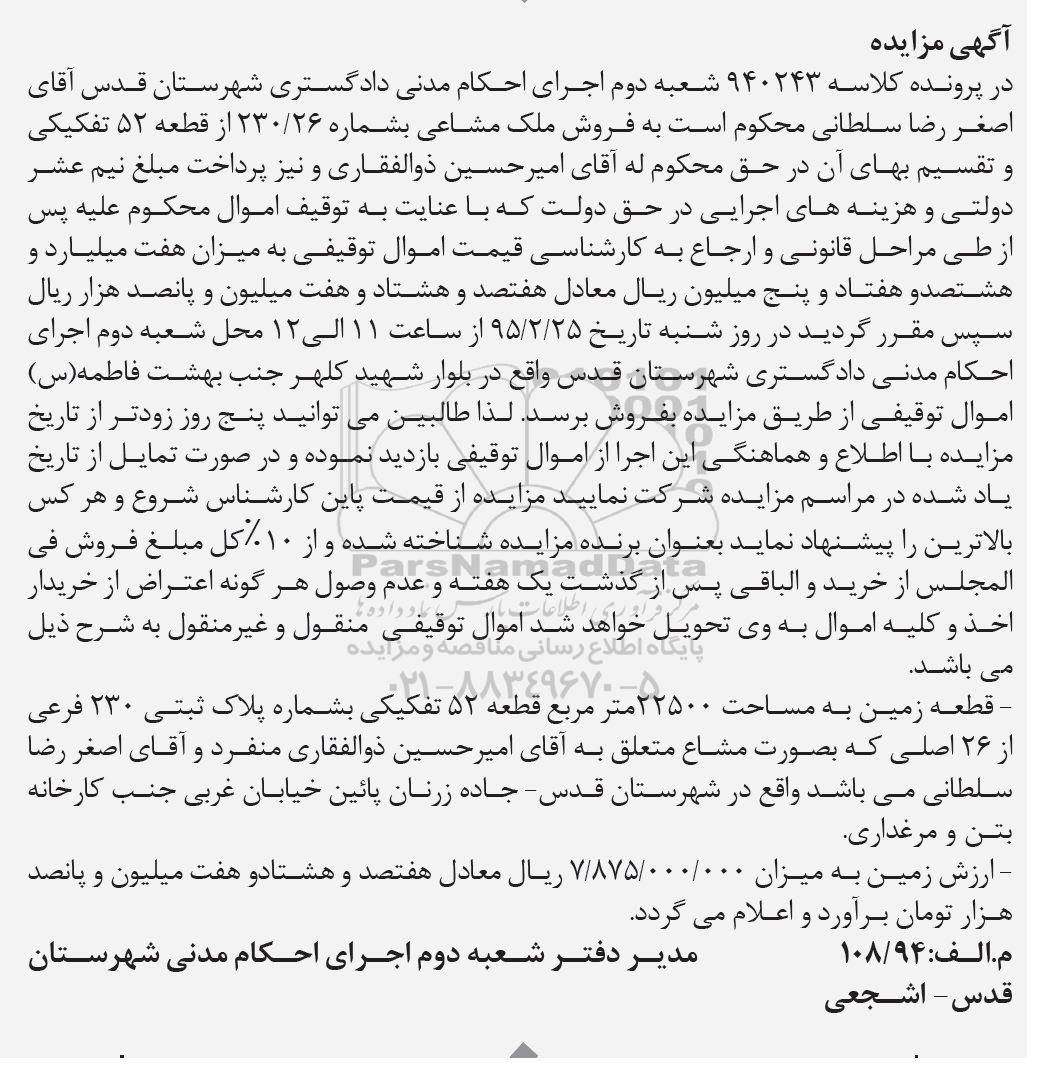 آگهی مزایده
در پرونده کلاسه ۹۴۰۲۴۳ شعبه دوم اجرای احکام مدنی دادگستری شهرستان قدس آقای
اصغر رضا سلطانی محکوم است به فروش ملک مشاعی بشماره ۲۳۰/۲۶ از قطعه ۵۲ تفکیکی
و تقسیم بهای آن در حق محکوم له آقای امیرحسین ذوالفقاری و نیز پرداخت مبلغ نیم عشر
دولتی و هزینه های اجرایی در حق دولت که با عنایت به توقیف اموال محکوم علیه پس
از طی مراحل قانونی و ارجاع به کارشناسی قیمت اموال توقیفی به میزان هفت میلیارد و
هشتصدو هفتاد و پنج میلیون ریال معادل هفتصد و هشتاد و هفت میلیون و پانصد هزار ریال
سپس مقرر گردید در روز شنبه تاریخ ۹۵/۲/۲۵ از ساعت ۱۱ الی۱۲ محل شعبه دوم اجرای
احکام مدنی دادگستری شهرستان قدس واقع در بلوار شهید کلهر جنب بهشت فاطمه(س)
اموال توقیفی از طریق مزایده بفروش برسد. لذا طالبین می توانید پنج روز زودتر از تاریخ
مزایده با اطلاع و هماهنگی این اجرا از اموال توقیفی بازدید نموده و در صورت تمایل از تاریخ
یاد شده در مراسم مزایده شرکت نمایید مزایده از قیمت پاین کارشناس شروع و هر کس
بالاترین را پیشنهاد نماید بعنوان برنده مزایده شناخته شده و از ۱۰٪کل مبلغ فروش فی
المجلس از خرید و الباقی پس از گذشت یک هفته و عدم وصول هر گونه اعتراض از خریدار
اخذ و کلیه اموال به وی تحویل خواهد شد اموال توقیفی منقول و غیرمنقول به شرح ذیل
می باشد.
- قطعه زمین به مساحت ۲۲۵۰۰متر مربع قطعه ۵۲ تفکیکی بشماره پلاک ثبتی ۲۳۰ فرعی
از ۲۶ اصلی که بصورت مشاع متعلق به آقای امیرحسین ذوالفقاری منفرد و آقای اصغر رضا
سلطانی می باشد واقع در شهرستان قدس- جاده زرنان پائین خیابان غربی جنب کارخانه
بتن و مرغداری.
- ارزش زمین به میزان ۷/۸۷۵/۰۰۰/۰۰۰ ریال معادل هفتصد و هشتادو هفت میلیون و پانصد
هزار تومان برآورد و اعلام می گردد.
م.الف:۱۰۸/۹۴ مدیر دفتر شعبه دوم اجرای احکام مدنی شهرستان
قدس- اشجعی
ParsNamadData
مرکز فرآوری اطلاعات پارس نماد داده ها
پایگاه اطلاع رسانی مناقصه و مزایده
۰۲۱-۸۸۳۴۹۶۷۰-۵